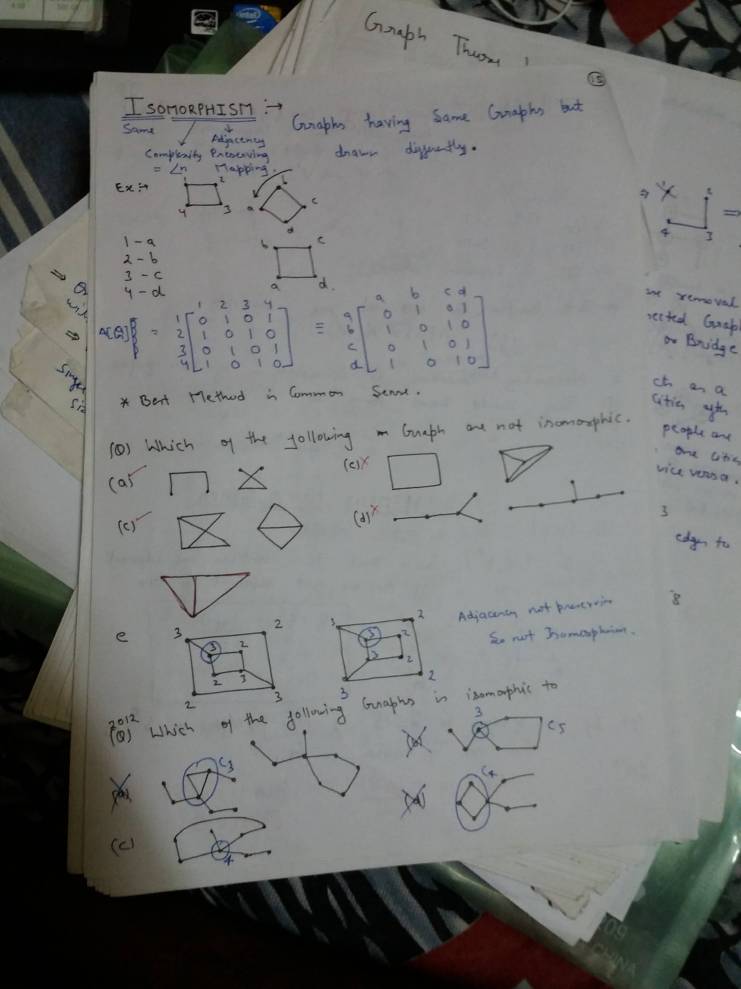 intel
Graph Theory
15
ISOMORPHISM :→ Graphs having Same Graphs but
drawn differently.
Same
Complexity
= Ln
Adjacency
Preserving
Mapping.
Ex :→
1 2
4 3
b
a c
d
1 - a
2 - b
3 - c
4 - d
b c
a d.
1 2 3 4
1 0 1 0 1
2 1 0 1 0
3 0 1 0 1
4 1 0 1 0
=
≡
a b c d
a 0 1 0 1
b 1 0 1 0
c 0 1 0 1
d 1 0 1 0
* Best Method is Common Sense.
(Q) Which of the following Graph are not isomorphic.
(a)
(c)
(c)
(d)
e
3 2
3 2
2 3
2 3
3 2
3 2
3 2
3 2
Adjacency not preservin
So not Isomorphism.
2012
(Q) Which of the following Graphs is isomorphic to
(a) C3
(b) 3 C5
(c) 4
(d) C4
⇒ 1 2 ⇒
4 3
removal
Graph
or Bridge
as a
Cities
people are
one cities
vice versa.
3
edges to
8
CHINA